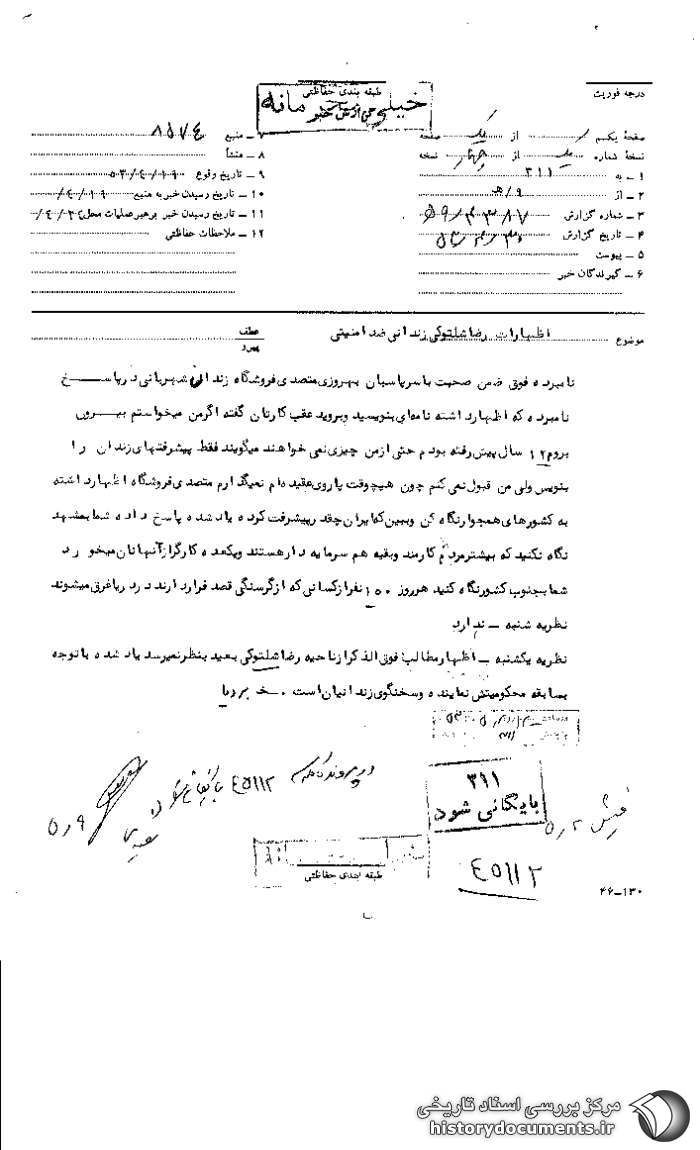 طبقه بندی حفاظتی
خیلی محرمانه
گزارش خبر
درجه فوریت
صفحهٔ یکم از یک صفحه
نسخهٔ شماره یک از چهار نسخه
۱ – به ۳۱۱
۲ – از ۹/هـ
۳ – شماره گزارش
۴ – تاریخ گزارش
۵ – پیوست
۶ – گیرندگان خبر
۷ – منبع ۸۵۷۴
۸ – منشأ
۹ – تاریخ وقوع ۵۳/۴/۱۹
۱۰ – تاریخ رسیدن خبر به منبع /۴/۱۹
۱۱ – تاریخ رسیدن خبر برهبر عملیات محل
۱۲ – ملاحظات حفاظتی
موضوع اظهارات رضا شلتوکی زندانی ضد امنیتی
عطف
پیرو
نامبرده فوق ضمن صحبت با سرپاسبان بهروزی متصدی فروشگاه زندان شهربانی در پاسخ
نامبرده که اظهار داشته نامه‌ای بنویسید و بروید عقب کارتان گفته اگر من میخواستم بیرون
بروم ۱۲ سال پیش رفته بودم حتی از من چیزی نمی خواهند میگویند فقط پیشرفتهای زندان را
بنویس ولی من قبول نمی کنم چون هیچوقت پا روی عقیده‌ام نمیگذارم متصدی فروشگاه اظهار داشته
به کشورهای همجوار نگاه کن و ببین که ایران چقدر پیشرفت کرده یاد شده پاسخ داده شما بمشهد
نگاه نکنید که بیشتر مردم کارمند و بقیه هم سرمایه دار هستند و یکعده کارگر از آنها نان میخورد
شما بجنوب کشور نگاه کنید هر روز ۱۵۰ نفر از کسانی که از گرسنگی قصد فرار دارند در دریا غرق میشوند
نظریه شنبه – ندارد
نظریه یکشنبه – اظهار مطالب فوق الذکر از ناحیه رضا شلتوکی بعید بنظر نمیرسد یاد شده با توجه
بسابقه محکومیتش نماینده و سخنگوی زندانیان است.
در پرونده کلاسه ۴۵۱۱۲ بایگانی شود
۳۱۱
بایگانی شود
فیش
۵٫۲
۵٫۹
۴۵۱۱۲
طبقه بندی حفاظتی
۴۶–۱۳۰
مرکز بررسی اسناد تاریخی
historydocuments.ir